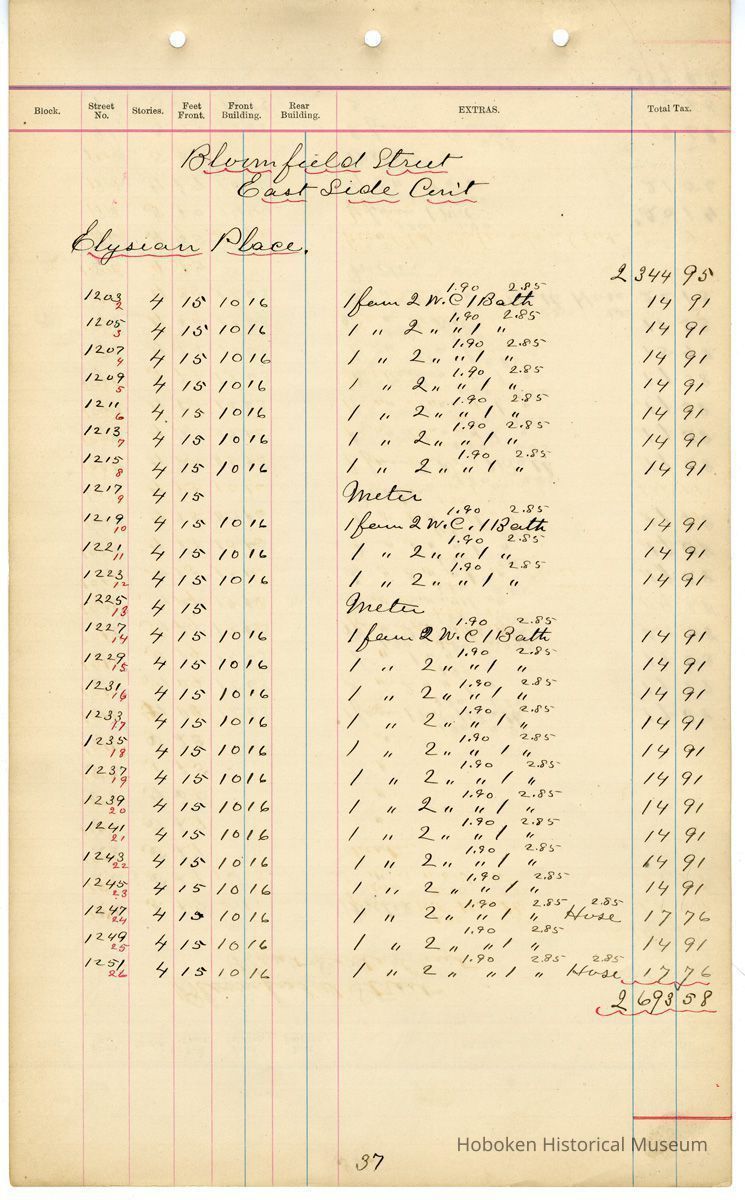 Block. Street No. Stories. Feet Front. Front Building. Rear Building. EXTRAS. Total Tax.
Bloomfield Street
East Side Con't
Elysian Place.
2 344 95
1.90 2.85
1203 2 4 15 10 16 1 fam 2 W.C 1 Bath 14 91
1.90 2.85
1205 3 4 15 10 16 1 " 2 " " 1 " 14 91
1.90 2.85
1207 4 4 15 10 16 1 " 2 " " 1 " 14 91
1.90 2.85
1209 5 4 15 10 16 1 " 2 " " 1 " 14 91
1.90 2.85
1211 6 4 15 10 16 1 " 2 " " 1 " 14 91
1.90 2.85
1213 7 4 15 10 16 1 " 2 " " 1 " 14 91
1.90 2.85
1215 8 4 15 10 16 1 " 2 " " 1 " 14 91
1217 9 4 15 Meter
1.90 2.85
1219 10 4 15 10 16 1 fam 2 W.C. 1 Bath 14 91
1.90 2.85
1221 11 4 15 10 16 1 " 2 " " 1 " 14 91
1.90 2.85
1223 12 4 15 10 16 1 " 2 " " 1 " 14 91
1225 13 4 15 Meter
1.90 2.85
1227 14 4 15 10 16 1 fam 2 W.C 1 Bath 14 91
1.90 2.85
1229 15 4 15 10 16 1 " 2 " " 1 " 14 91
1.90 2.85
1231 16 4 15 10 16 1 " 2 " " 1 " 14 91
1.90 2.85
1233 17 4 15 10 16 1 " 2 " " 1 " 14 91
1.90 2.85
1235 18 4 15 10 16 1 " 2 " " 1 " 14 91
1.90 2.85
1237 19 4 15 10 16 1 " 2 " " 1 " 14 91
1.90 2.85
1239 20 4 15 10 16 1 " 2 " " 1 " 14 91
1.90 2.85
1241 21 4 15 10 16 1 " 2 " " 1 " 14 91
1.90 2.85
1243 22 4 15 10 16 1 " 2 " " 1 " 14 91
1.90 2.85
1245 23 4 15 10 16 1 " 2 " " 1 " 14 91
1.90 2.85 2.85
1247 24 4 15 10 16 1 " 2 " " 1 " Hose 17 76
1.90 2.85
1249 25 4 15 10 16 1 " 2 " " 1 " 14 91
1.90 2.85 2.85
1251 26 4 15 10 16 1 " 2 " " 1 " Hose 17 76
2 693 58
Hoboken Historical Museum
37